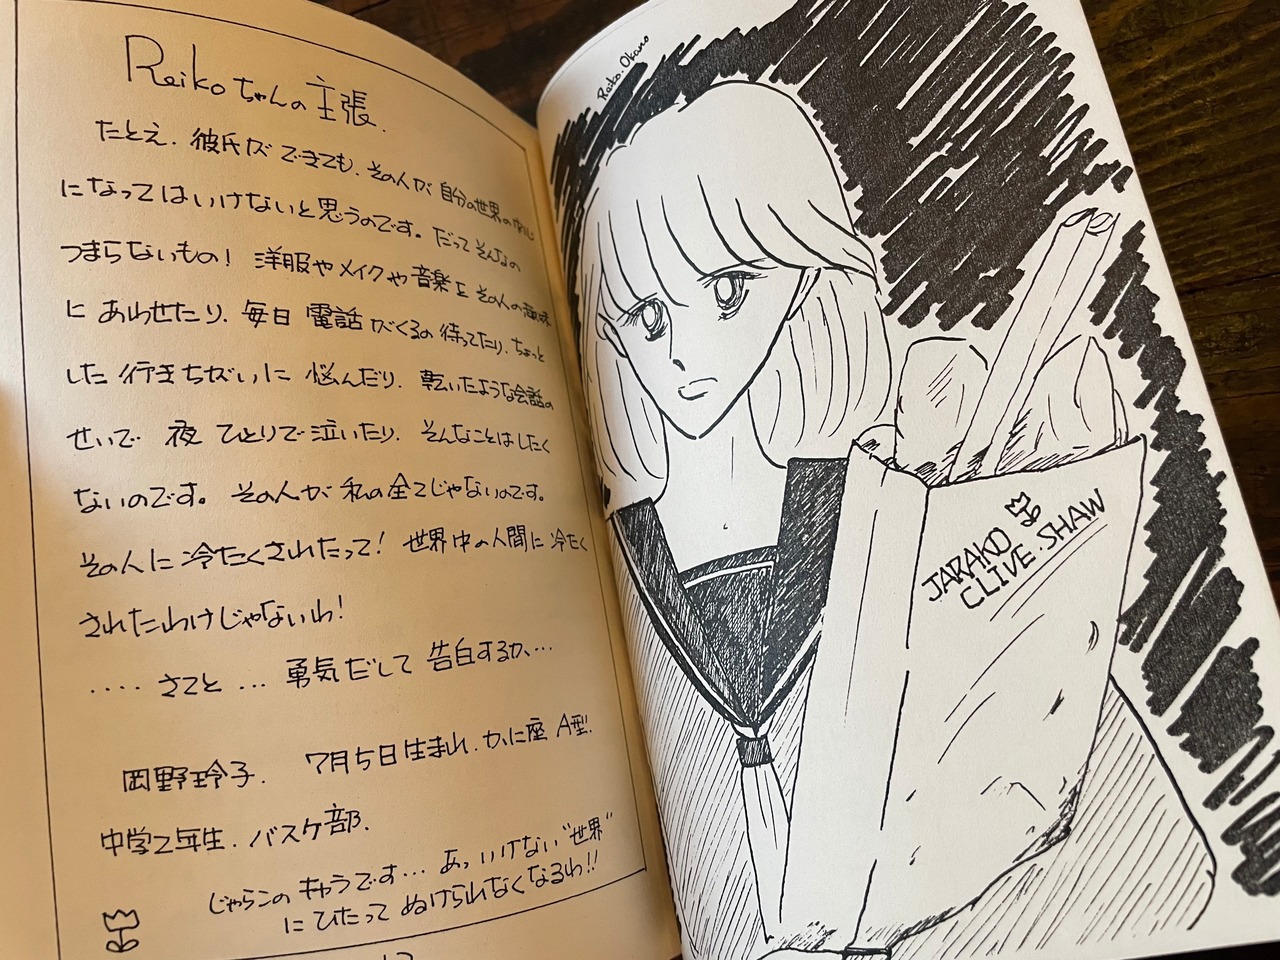 Reikoちゃんの主張.
たとえ.彼氏ができても.その人が自分の世界の中心
になってはいけないと思うのです。だってそんなの
つまらないもの!洋服やメイクや音楽をその人の趣味
にあわせたり、毎日電話がくるの待ってたり、ちょっと
した行きちがいに悩んだり、乾いたような会話の
せいで夜ひとりで泣いたり、そんなことはしたく
ないのです。その人が私の全てじゃないのです。
その人に冷たくされたって!世界中の人間に冷たく
されたわけじゃないわ!
‥‥さてと…勇気だして告白するか、…
岡野玲子. 7月5日生まれ.かに座A型.
中学2年生.バスケ部.
じゃらこのキャラです…あっいけない"世界"
にひたってぬけられなくなるわ!!
Reiko.Okano
JARAKO
CLIVE.SHAW